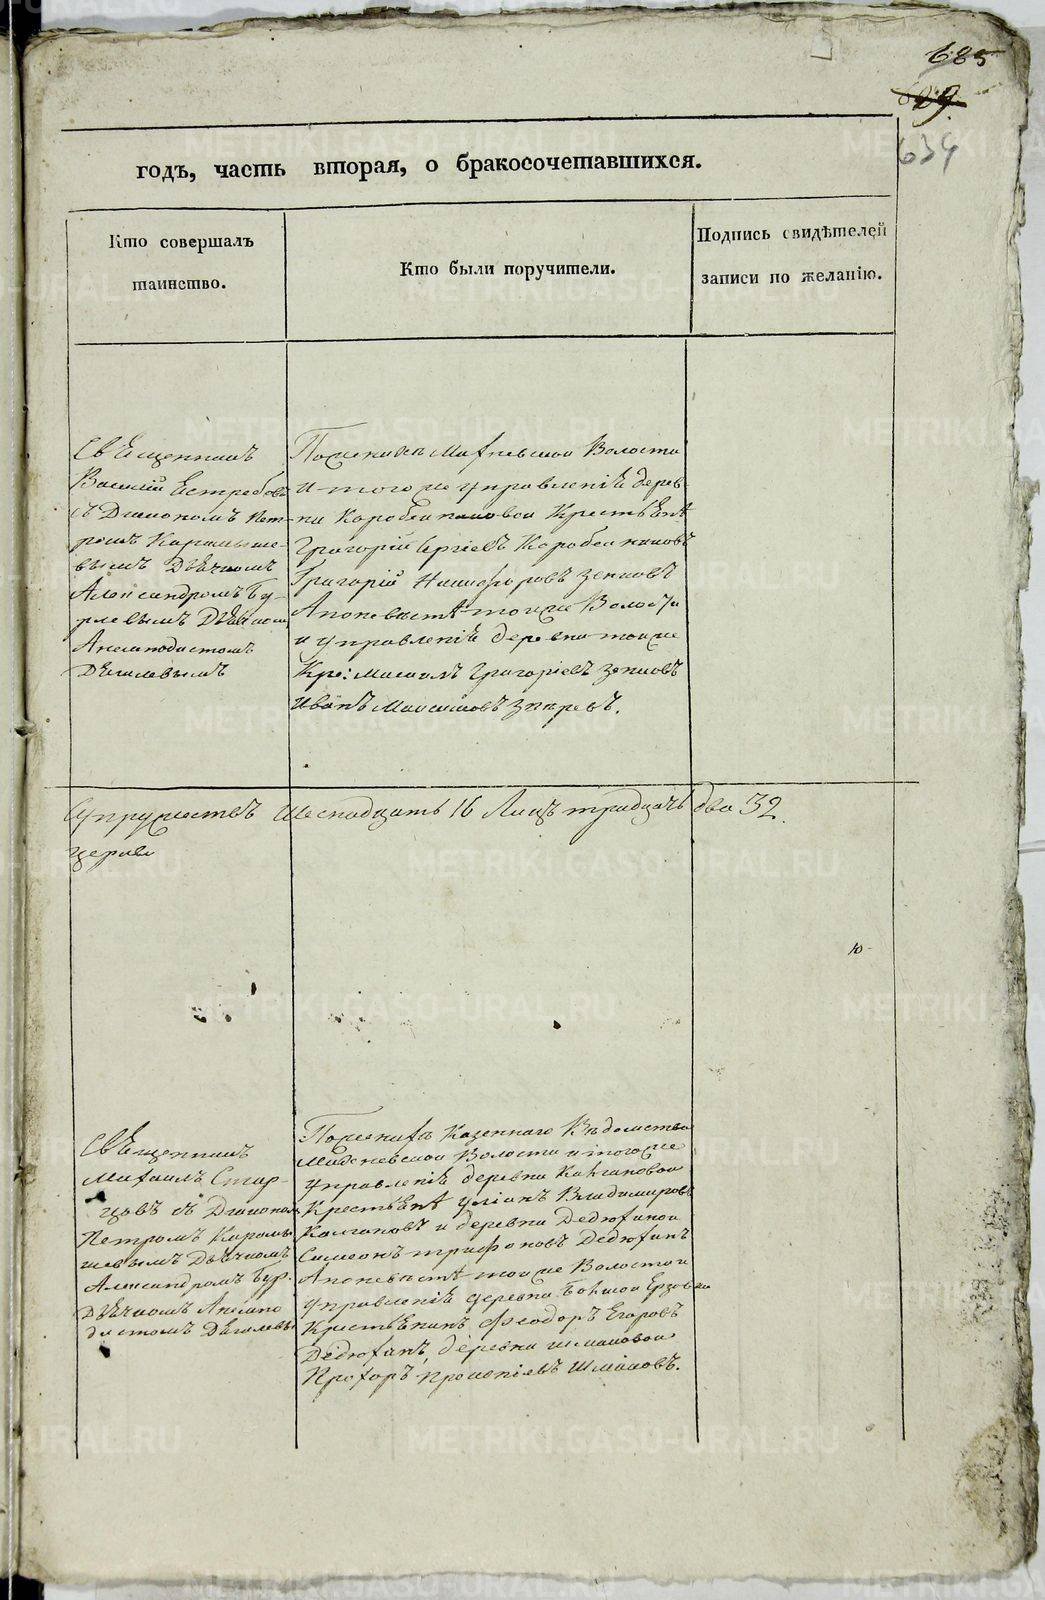 685
629.
634
годъ, часть вторая, о бракосочетавшихся.
Кто совершалъ
таинство.
Кто были поручители.
Подпись свидѣтелей
записи по желанію.
Священникъ
Василій Ястребовъ
съ Диакономъ Пет-
ромъ Карпыше-
вымъ Дьячкомъ
Александромъ Бу-
рлевымъ Дьячкомъ
Анемподистомъ
Дягилевымъ
По женихѣ Волости
и того же управленія дерев-
ни Коробейниковой Крестьяне
Григорій Сергіевъ Коробейниковъ
Григорій Никифоровъ Зенковъ
А по невѣстѣ той же Волости
и управленія деревни той же
Кре: Максимъ Григоріевъ Зенковъ
Иванъ Максимовъ
Супружествъ Шестнадцать 16 Лицъ тридцать два 32.
ю
Священникъ
Михаилъ Стар-
цовъ съ Диакономъ
Петромъ Карпы-
шевымъ Дьячкомъ
Александромъ Бур.
Дьячкомъ Анемпо
дистомъ Дягилевы
По женихѣ Казеннаго Вѣдомства
Волости и того же
управленія деревни
Крестьяне Уліанъ Владимировъ
и деревни Дедюхиной
Симеонъ Трифоновъ Дедюхинъ
А по невѣстѣ той же Волости и
управленія деревни
Крестьянинъ Феодоръ Егоровъ
Дедюхинъ, деревни Шмаковой
Прохоръ Прокопіевъ Шмаковъ.
METRIKI.GASO-URAL.RU